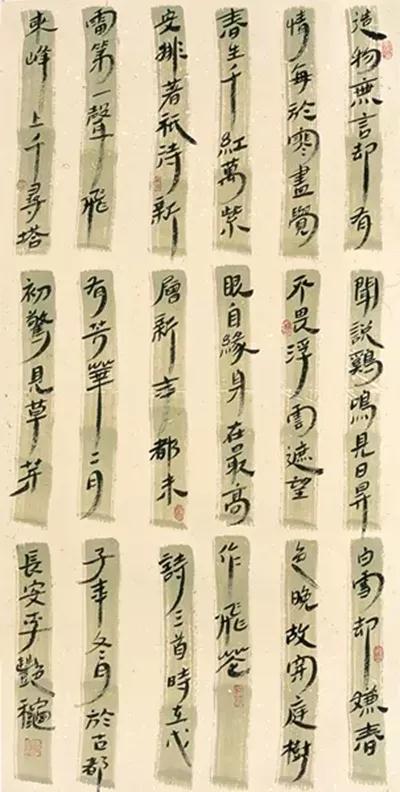 造物無言却有
情每於寒盡覺
春生千紅萬紫
安排著祇待新
雷第一聲飛
來峰上千尋塔
聞說鷄鳴見日昇
不畏浮雲遮望
眼自緣身在最高
層新年都未
有芳華二月
初驚見草芽
白雪却嫌春
色晚故穿庭樹
作飛花
詩三首時在戊
子年冬月於古都
長安平艷龝